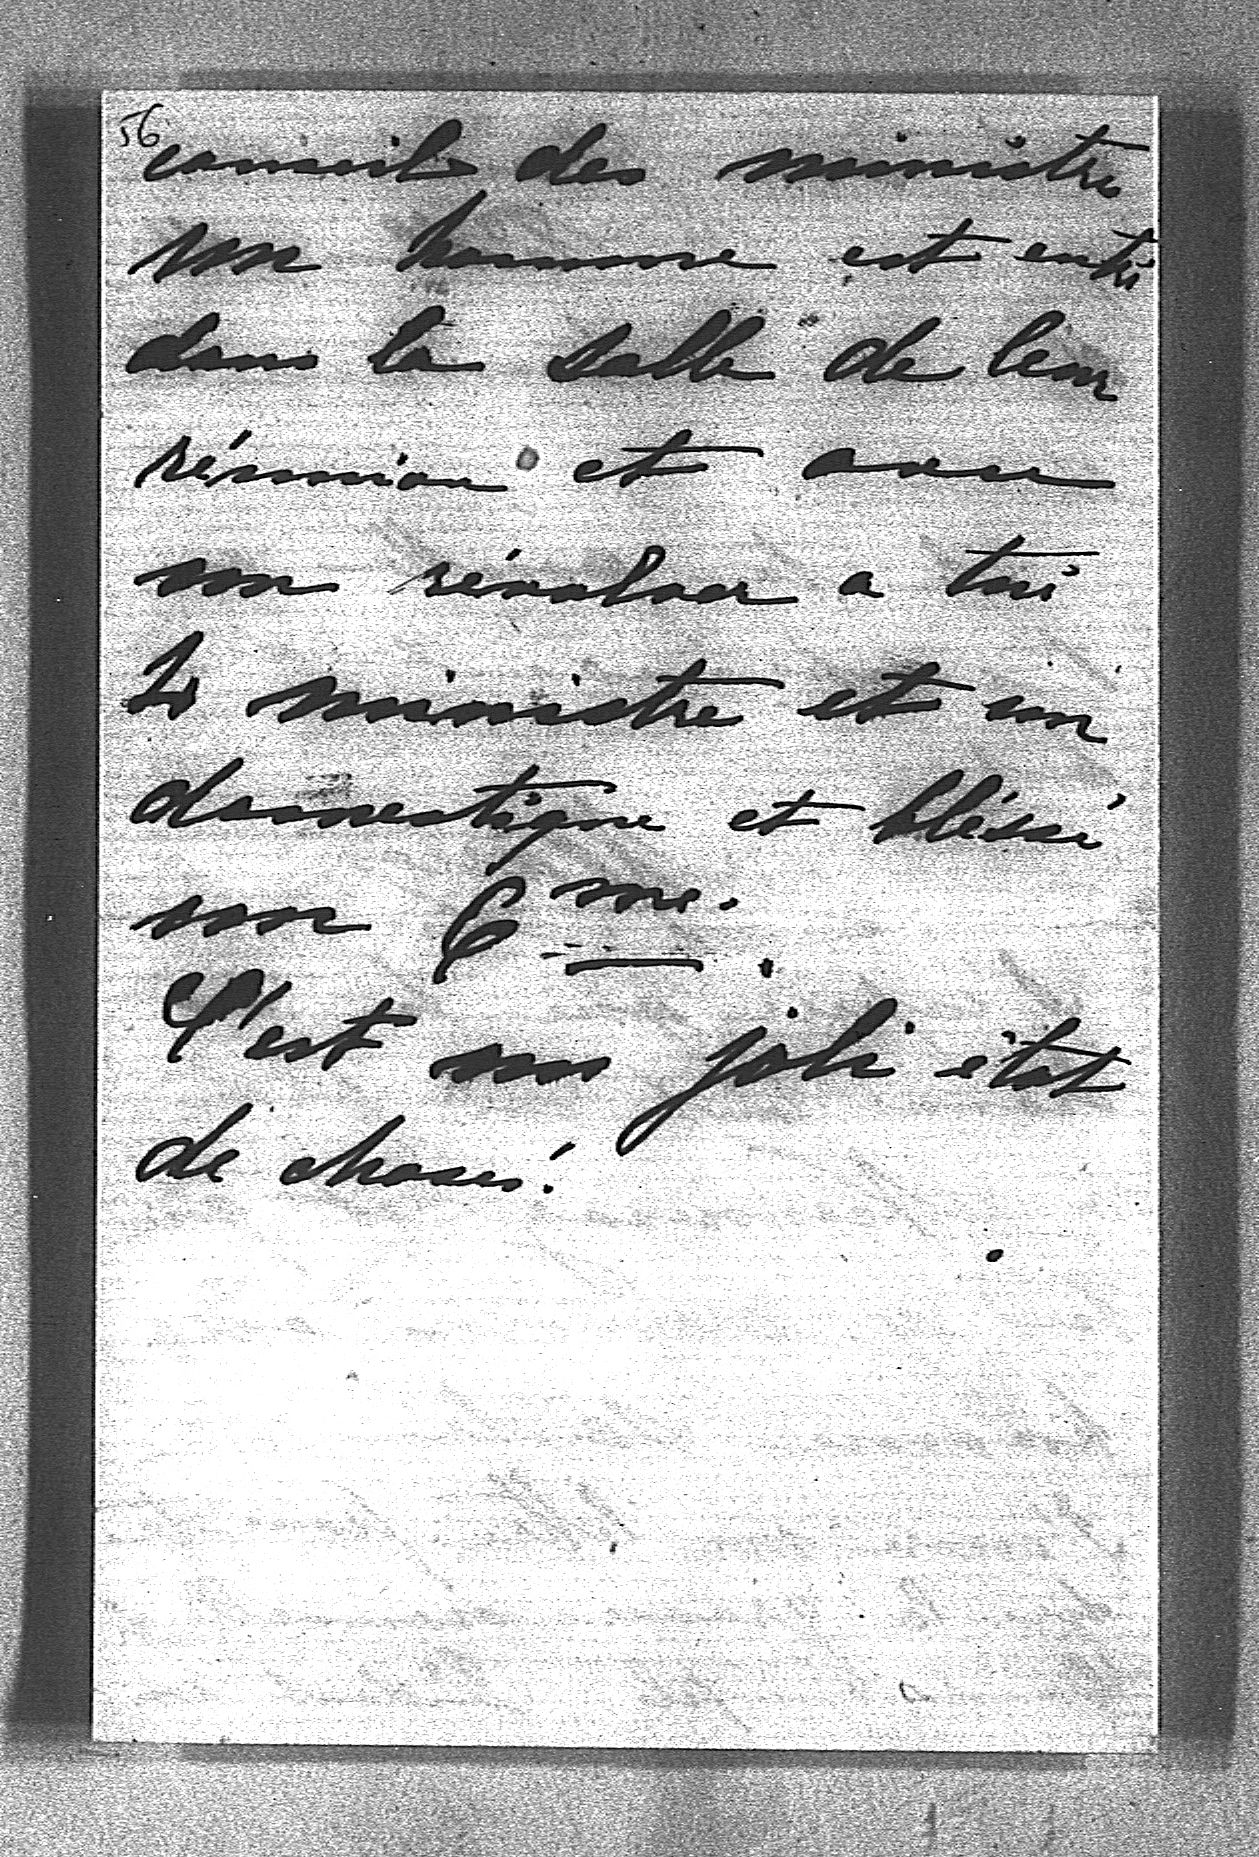 56
conseil des ministre
un homme est entré
dans la salle de leur
réunion et avec
un révolver a tué
4 ministre et un
domestique et bléssé
un 6me.
C'est un joli état
de choses!